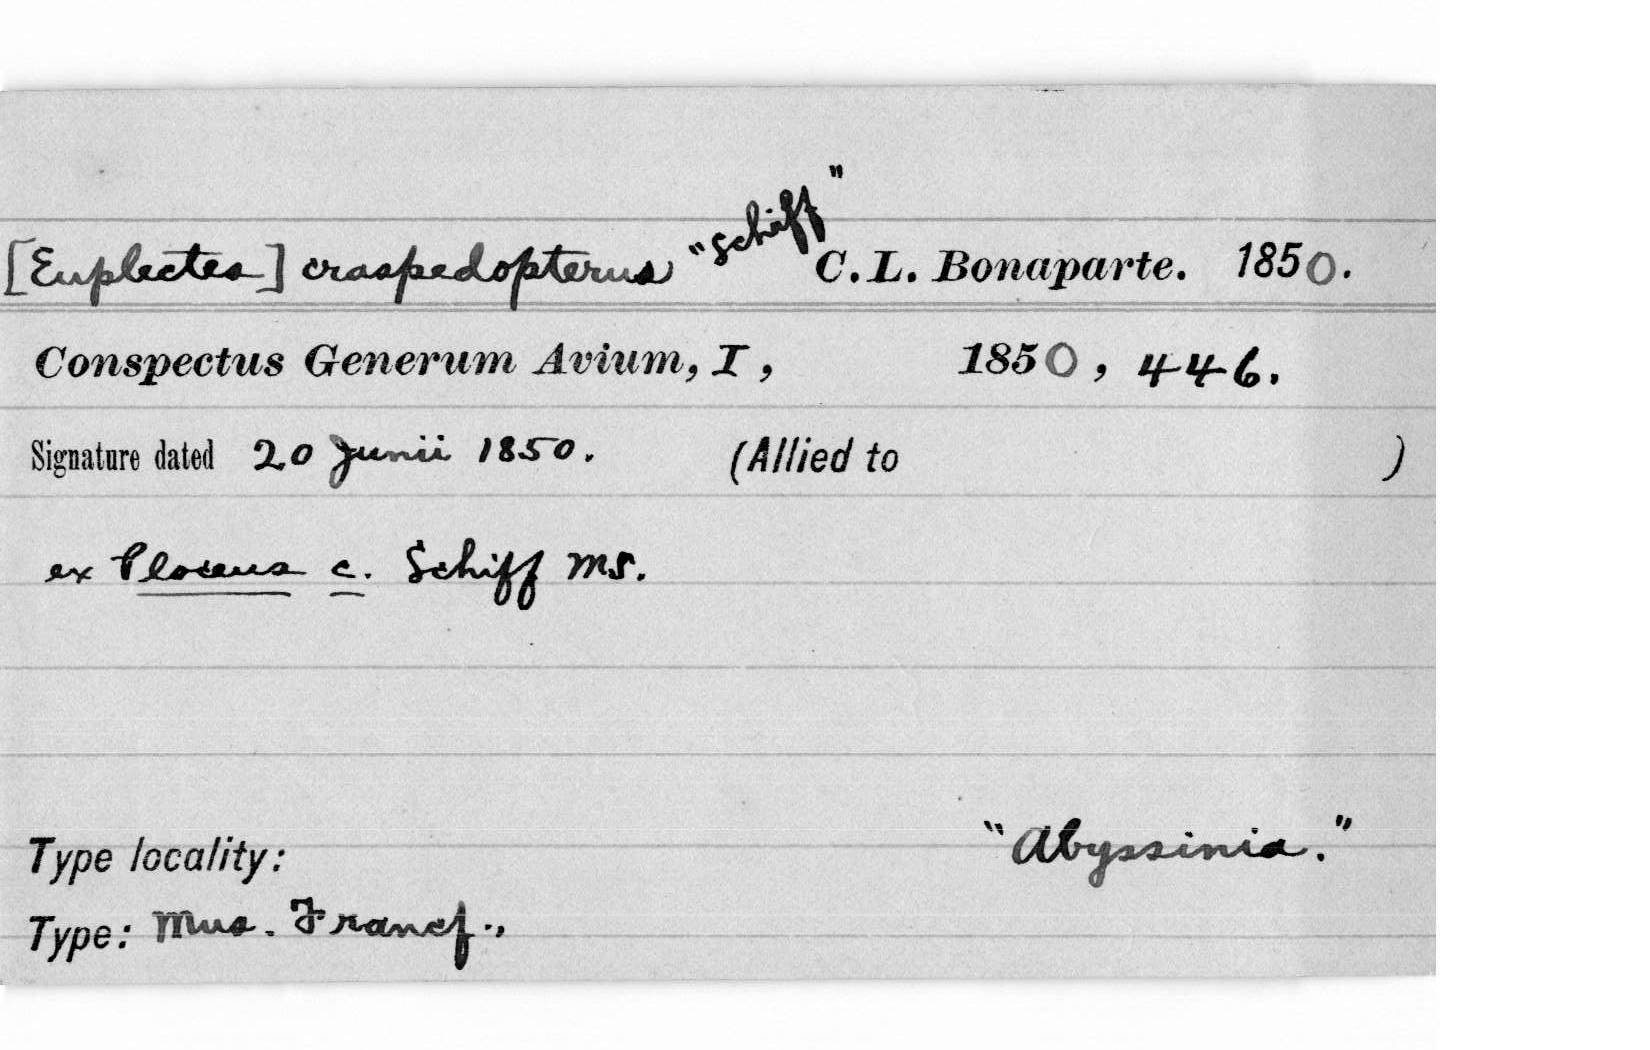 [Euplectes] craspedopterus "Schiff" C. L. Bonaparte. 1850.
Conspectus Generum Avium, I, 1850, 446.
Signature dated 20 Junii 1850. (Allied to )
ex Ploceus c. Schiff MS.
Type locality: "Abyssinia."
Type: Mus. Francf.,